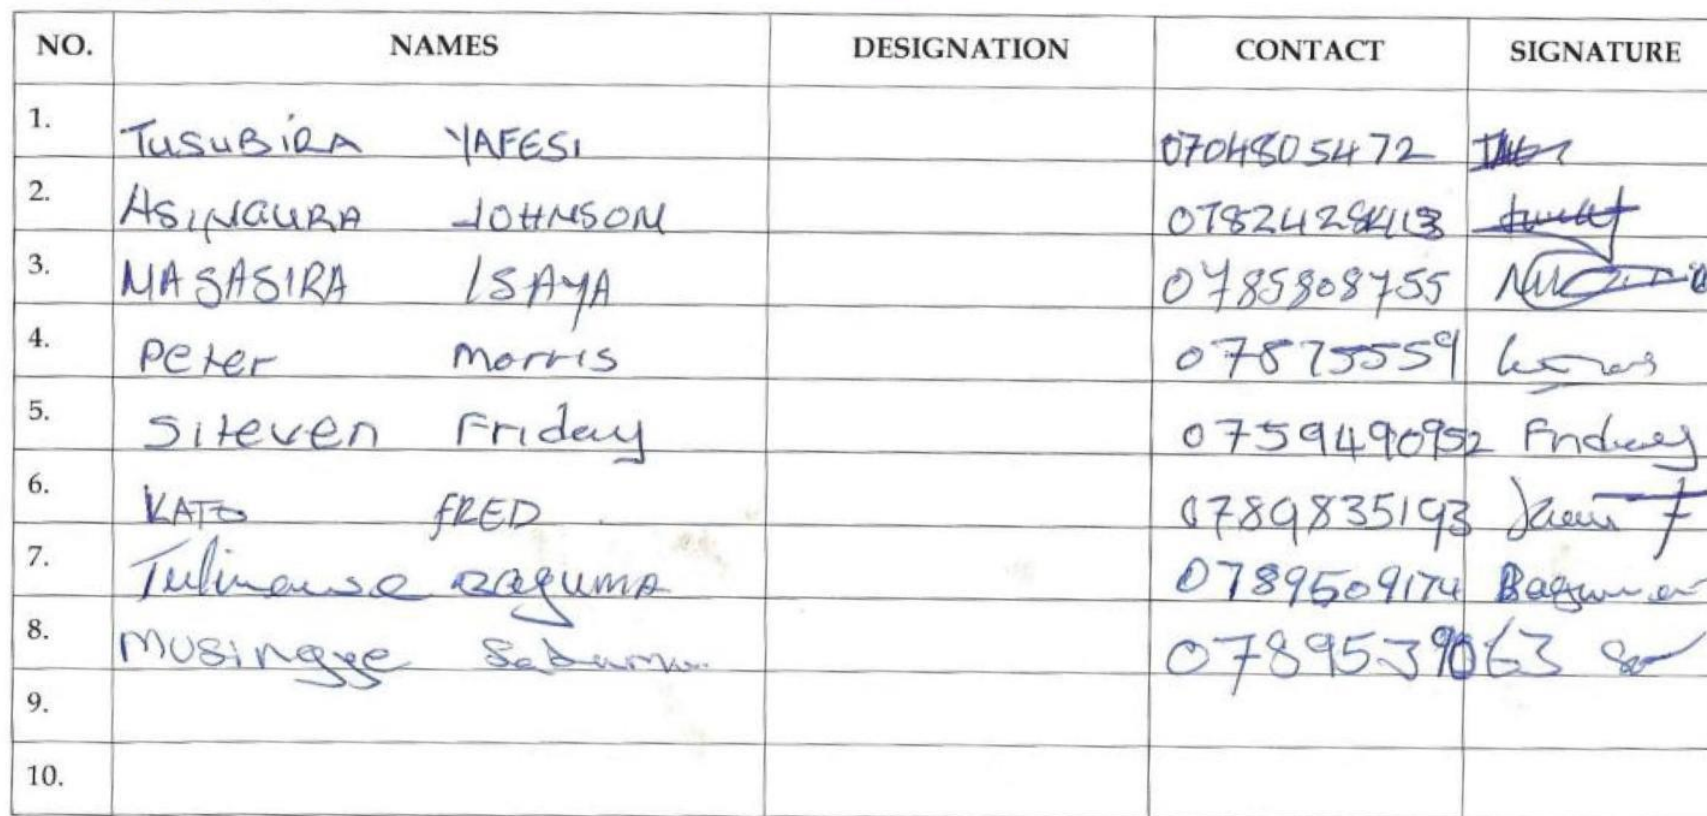 NO. NAMES DESIGNATION CONTACT SIGNATURE
1. TUSUBIRA YAFESI 0704805472
2. ASINGURA JOHNSON
3. MASASIRA ISAYA 0785808755
4. Peter Morris 07875559
5. Siteven Friday 0759490952 Friday
6. KATO FRED 0789835193
7. Tulinawe BAGUMA 0789509174 Baguma
8. MUSingge 0789539063
9.
10.